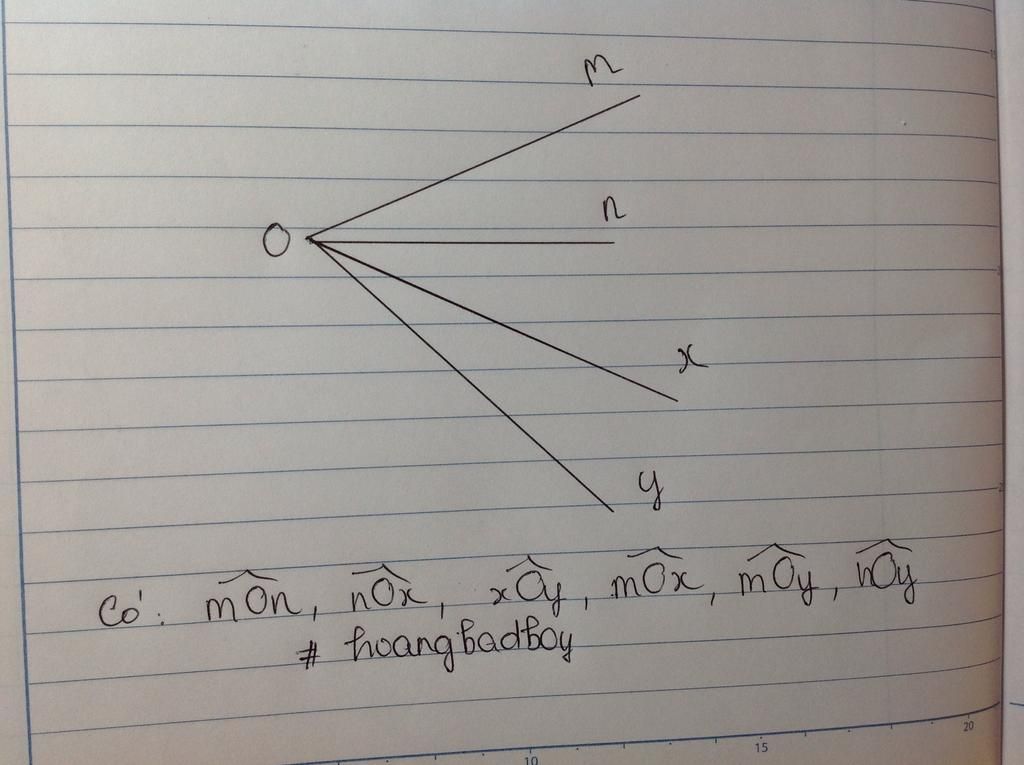 m
n
O
x
y
Có: mÔn, nÔx, xÔy, mÔx, mÔy, nÔy
# hoangbadboy
10 15 20